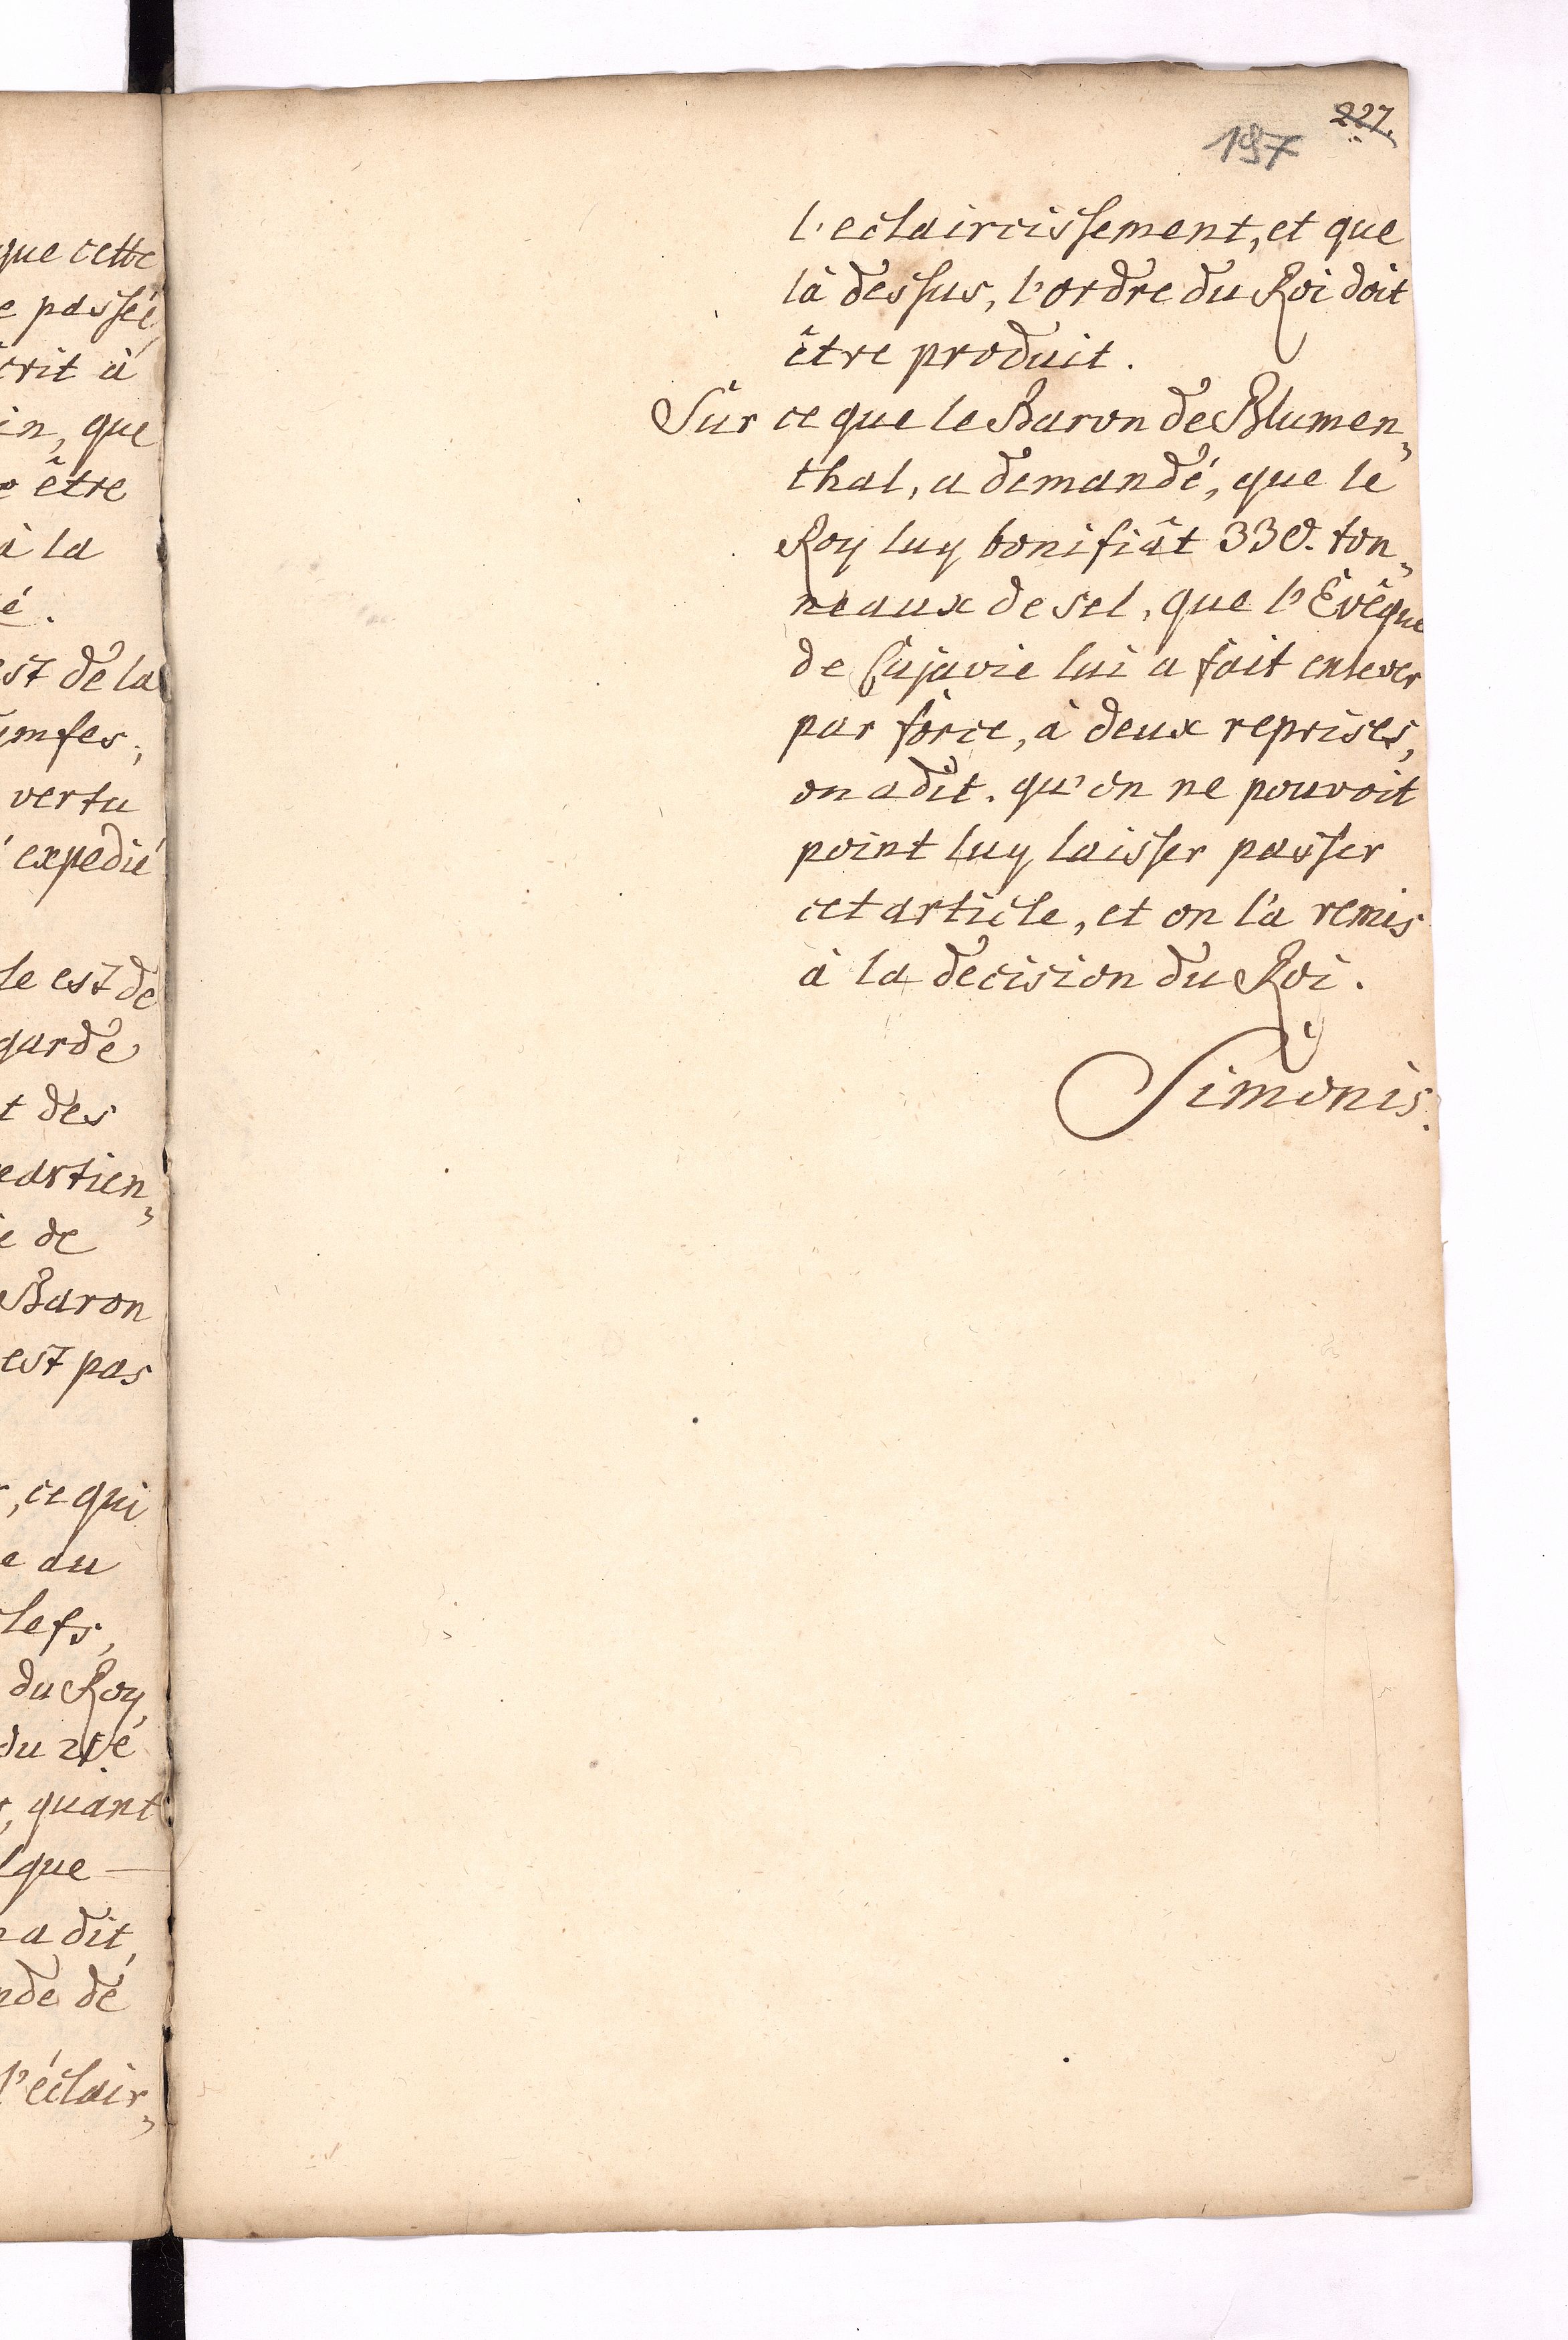 que cette
e passée
crit à
in, que
être
à la
é.
est de la
ymfes,
vertu
expedié
le est de
garde
t des
eartien„
e de
Baron
est pas
, ce qui
e au
clefs,
du Roy,
quant
lque —
a dit,
nde de
l'éclair„
227.
197
l'eclaircissement, et que
là dessus, l'ordre du Roi doit
être produit.
Sur ce que le Baron de Blumen„
thal, a demandé, que le
Roy luy bonifiât 330. ton„
neaux de sel, que l'Evêque
de Cujavie lui a fait enlever
par force, à deux reprises,
on a dit. qu'on ne pouvoit
point luy laisser passer
cet article, et on l'a remis
à la decision du Roi.
Simonis.